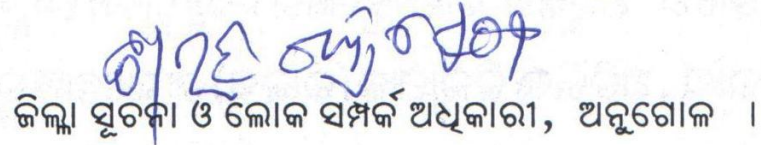 ଜିଲ୍ଲା ସୂଚନା ଓ ଲୋକ ସମ୍ପର୍କ ଅଧିକାରୀ, ଅନୁଗୋଳ ।